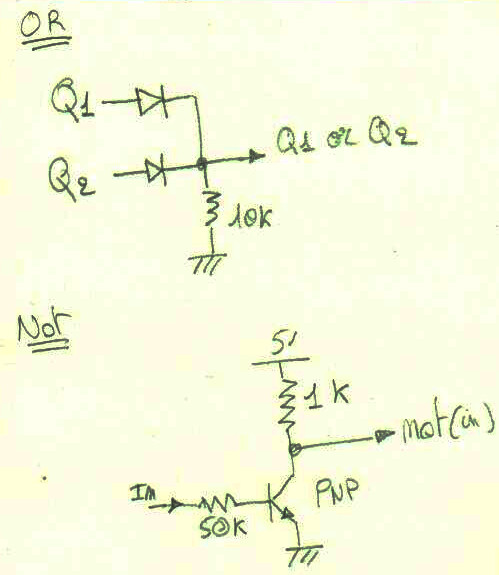 OR
Q1
Q1 or Q2
Q2
10K
Not
5V
1K
not(in)
In
PNP
50K